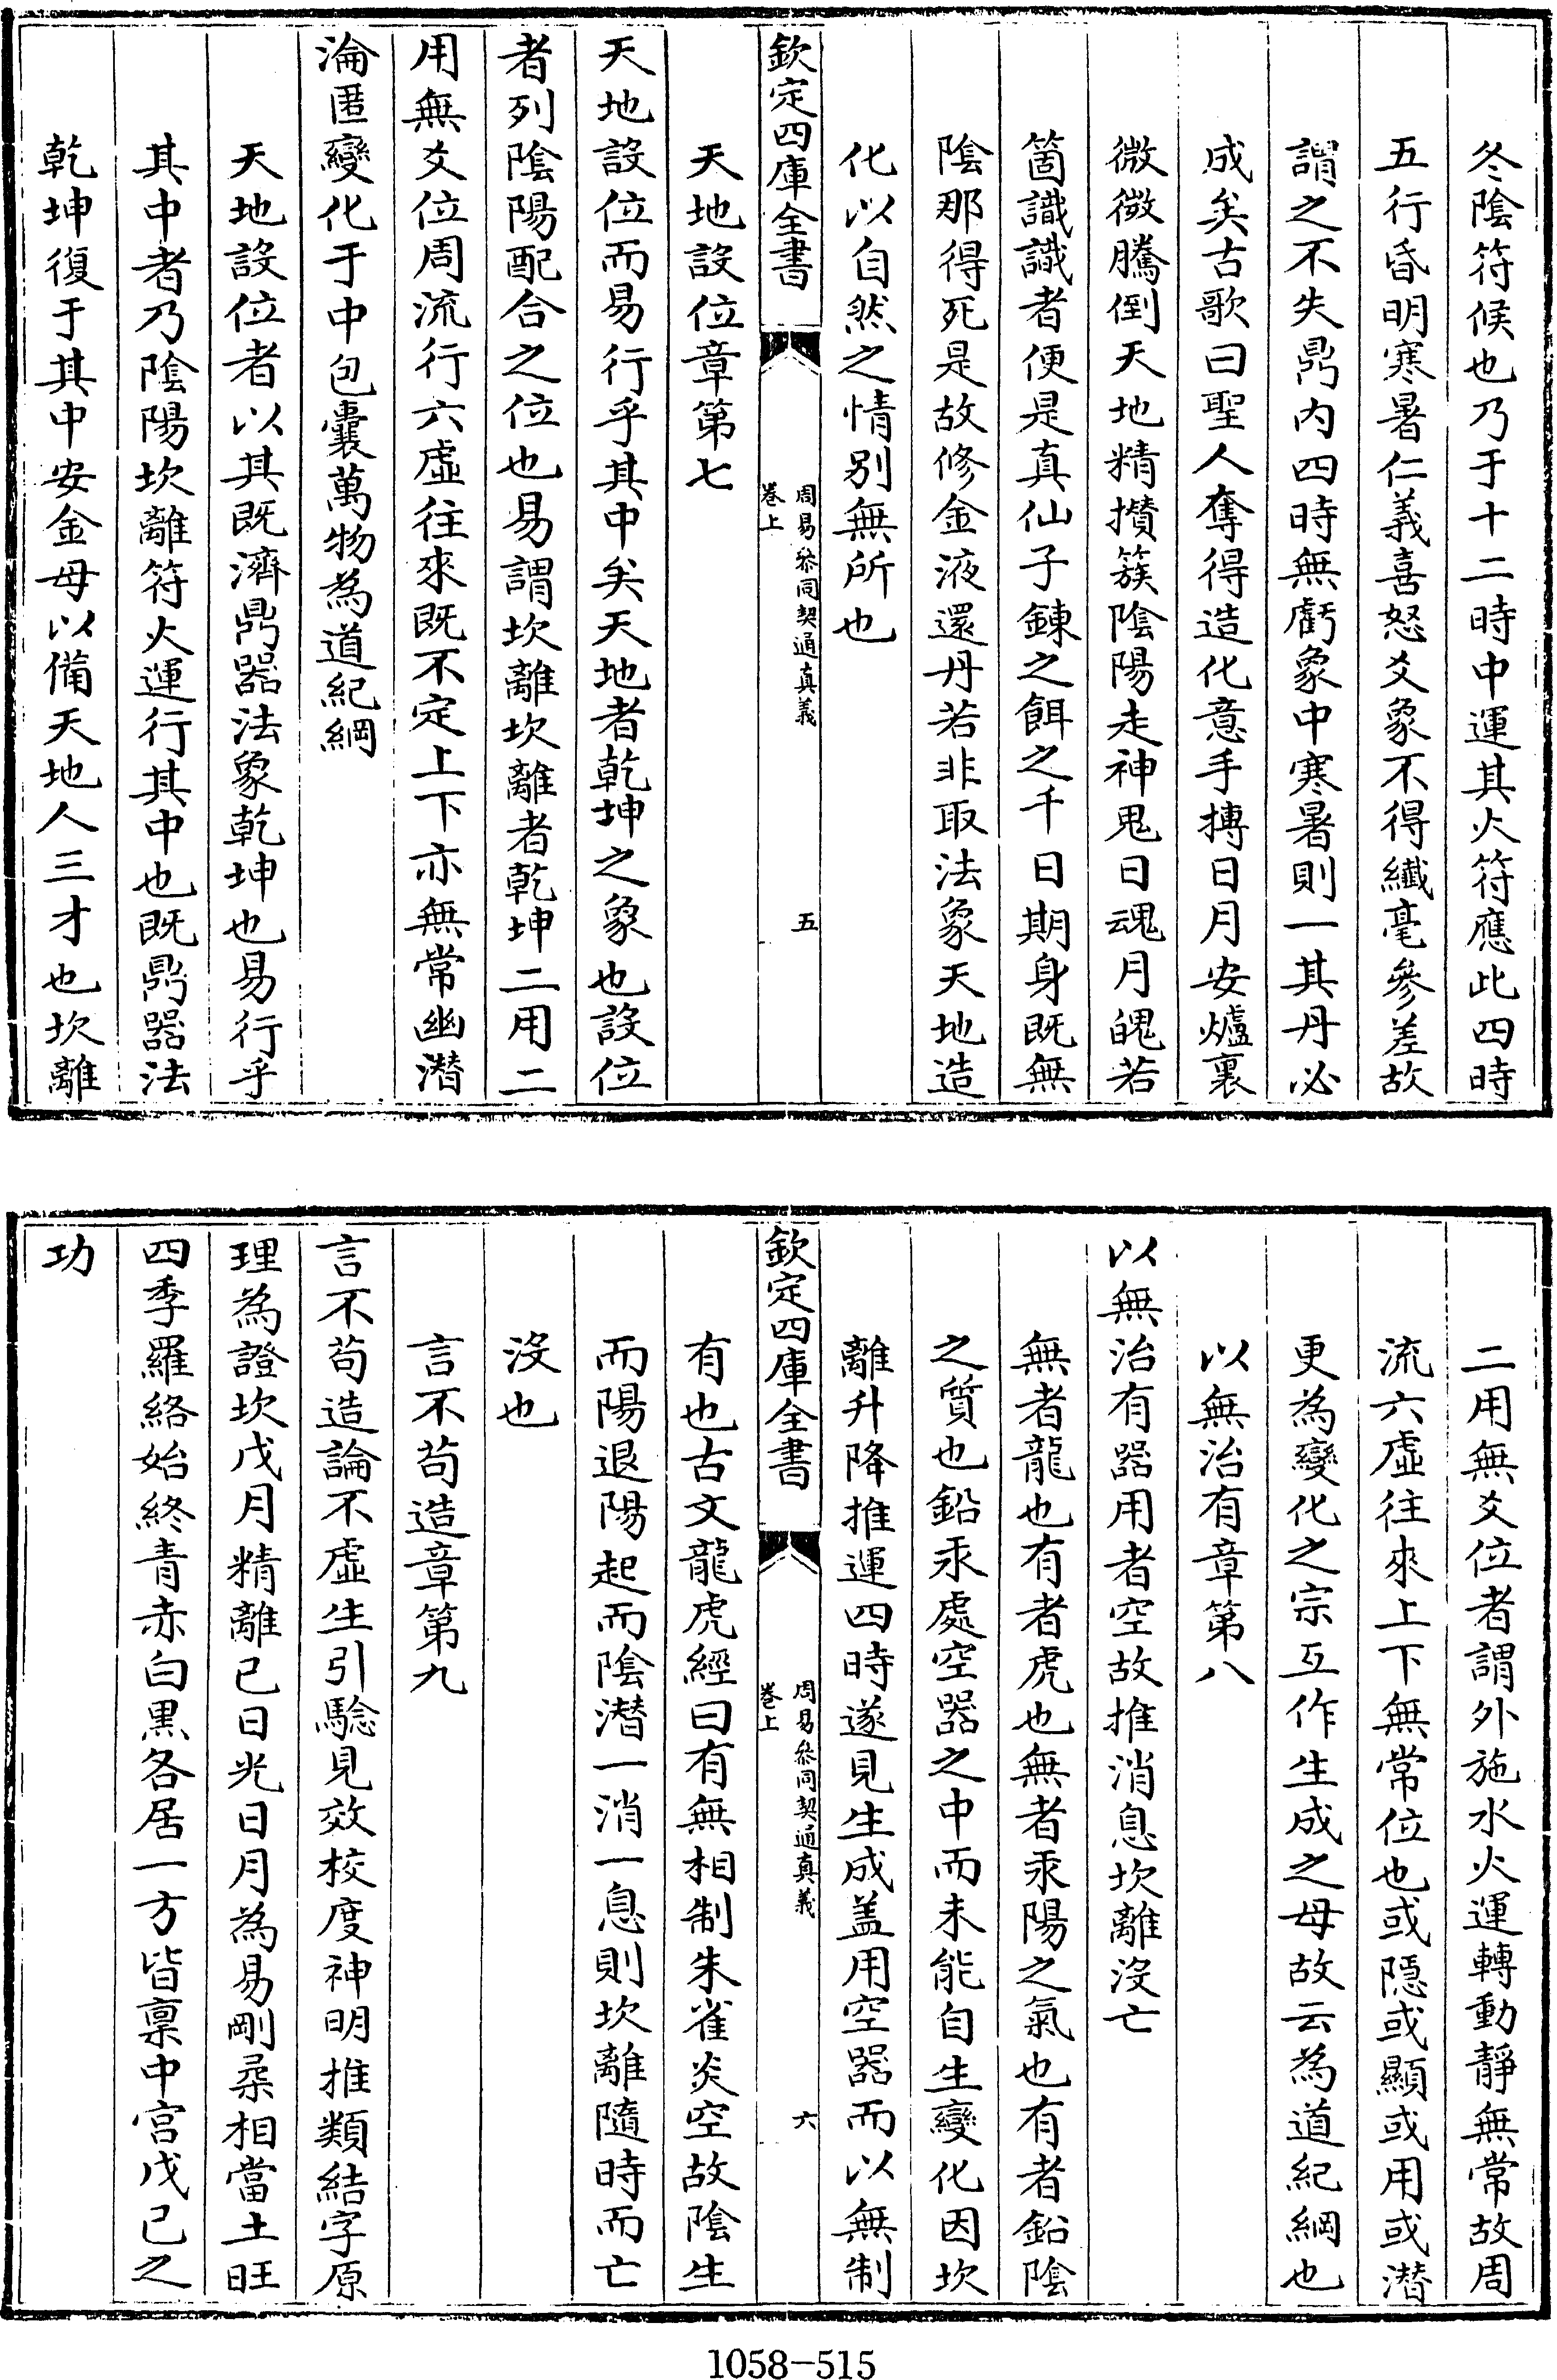 冬陰符候也乃于十二時中運其火符應此四時
五行昏明寒暑仁義喜怒爻象不得纖毫參差故
謂之不失鼎内四時無虧象中寒暑則一其丹必
成矣古歌曰聖人奪得造化意手搏日月安爐裏
微微騰倒天地精攅簇陰陽走神鬼日魂月魄若
箇識識者便是真仙子鍊之餌之千日期身既無
陰那得死是故修金液還丹若非取法象天地造
化以自然之情别無所也
欽定四庫全書
周易叅同契通真義
卷上
五
天地設位章第七
天地設位而易行乎其中矣天地者乾坤之象也設位
者列陰陽配合之位也易謂坎離坎離者乾坤二用二
用無爻位周流行六虛往來既不定上下亦無常幽潜
淪匿變化于中包囊萬物為道紀綱
天地設位者以其既濟鼎器法象乾坤也易行乎
其中者乃陰陽坎離符火運行其中也既鼎器法
乾坤復于其中安金母以備天地人三才也坎離
二用無爻位者謂外施水火運轉動靜無常故周
流六虛往來上下無常位也或隠或顯或用或潜
更為變化之宗互作生成之母故云為道紀綱也
以無治有章第八
以無治有器用者空故推消息坎離没亡
無者龍也有者虎也無者汞陽之氣也有者鉛陰
之質也鉛汞處空器之中而未能自生變化因坎
離升降推運四時遂見生成盖用空器而以無制
欽定四庫全書
周易叅同契通真義
卷上
六
有也古文龍虎經曰有無相制朱雀炎空故陰生
而陽退陽起而陰潜一消一息則坎離隨時而亡
没也
言不茍造章第九
言不茍造論不虛生引驗見效校度神明推類結字原
理為證坎戊月精離己日光日月為易剛柔相當土旺
四季羅絡始終青赤白黑各居一方皆稟中宫戊己之
功
1058-515